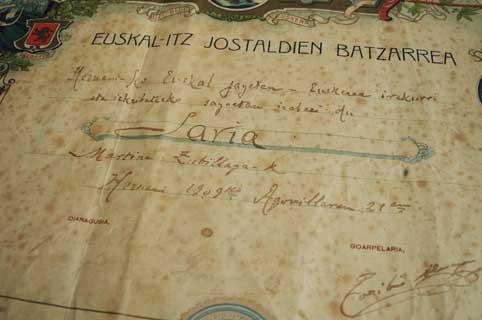 EUSKAL-ITZ JOSTALDIEN BATZARREA
Hernani-ko Euskal jayetan - Euskera irakurri
eta izkribatzeko sayoetan irabazi du
Saria
Martina Zubillaga-k
Hernani 1909ko Agorrillaren 21an
DIARAGUSIA,
GOARPELARIA,